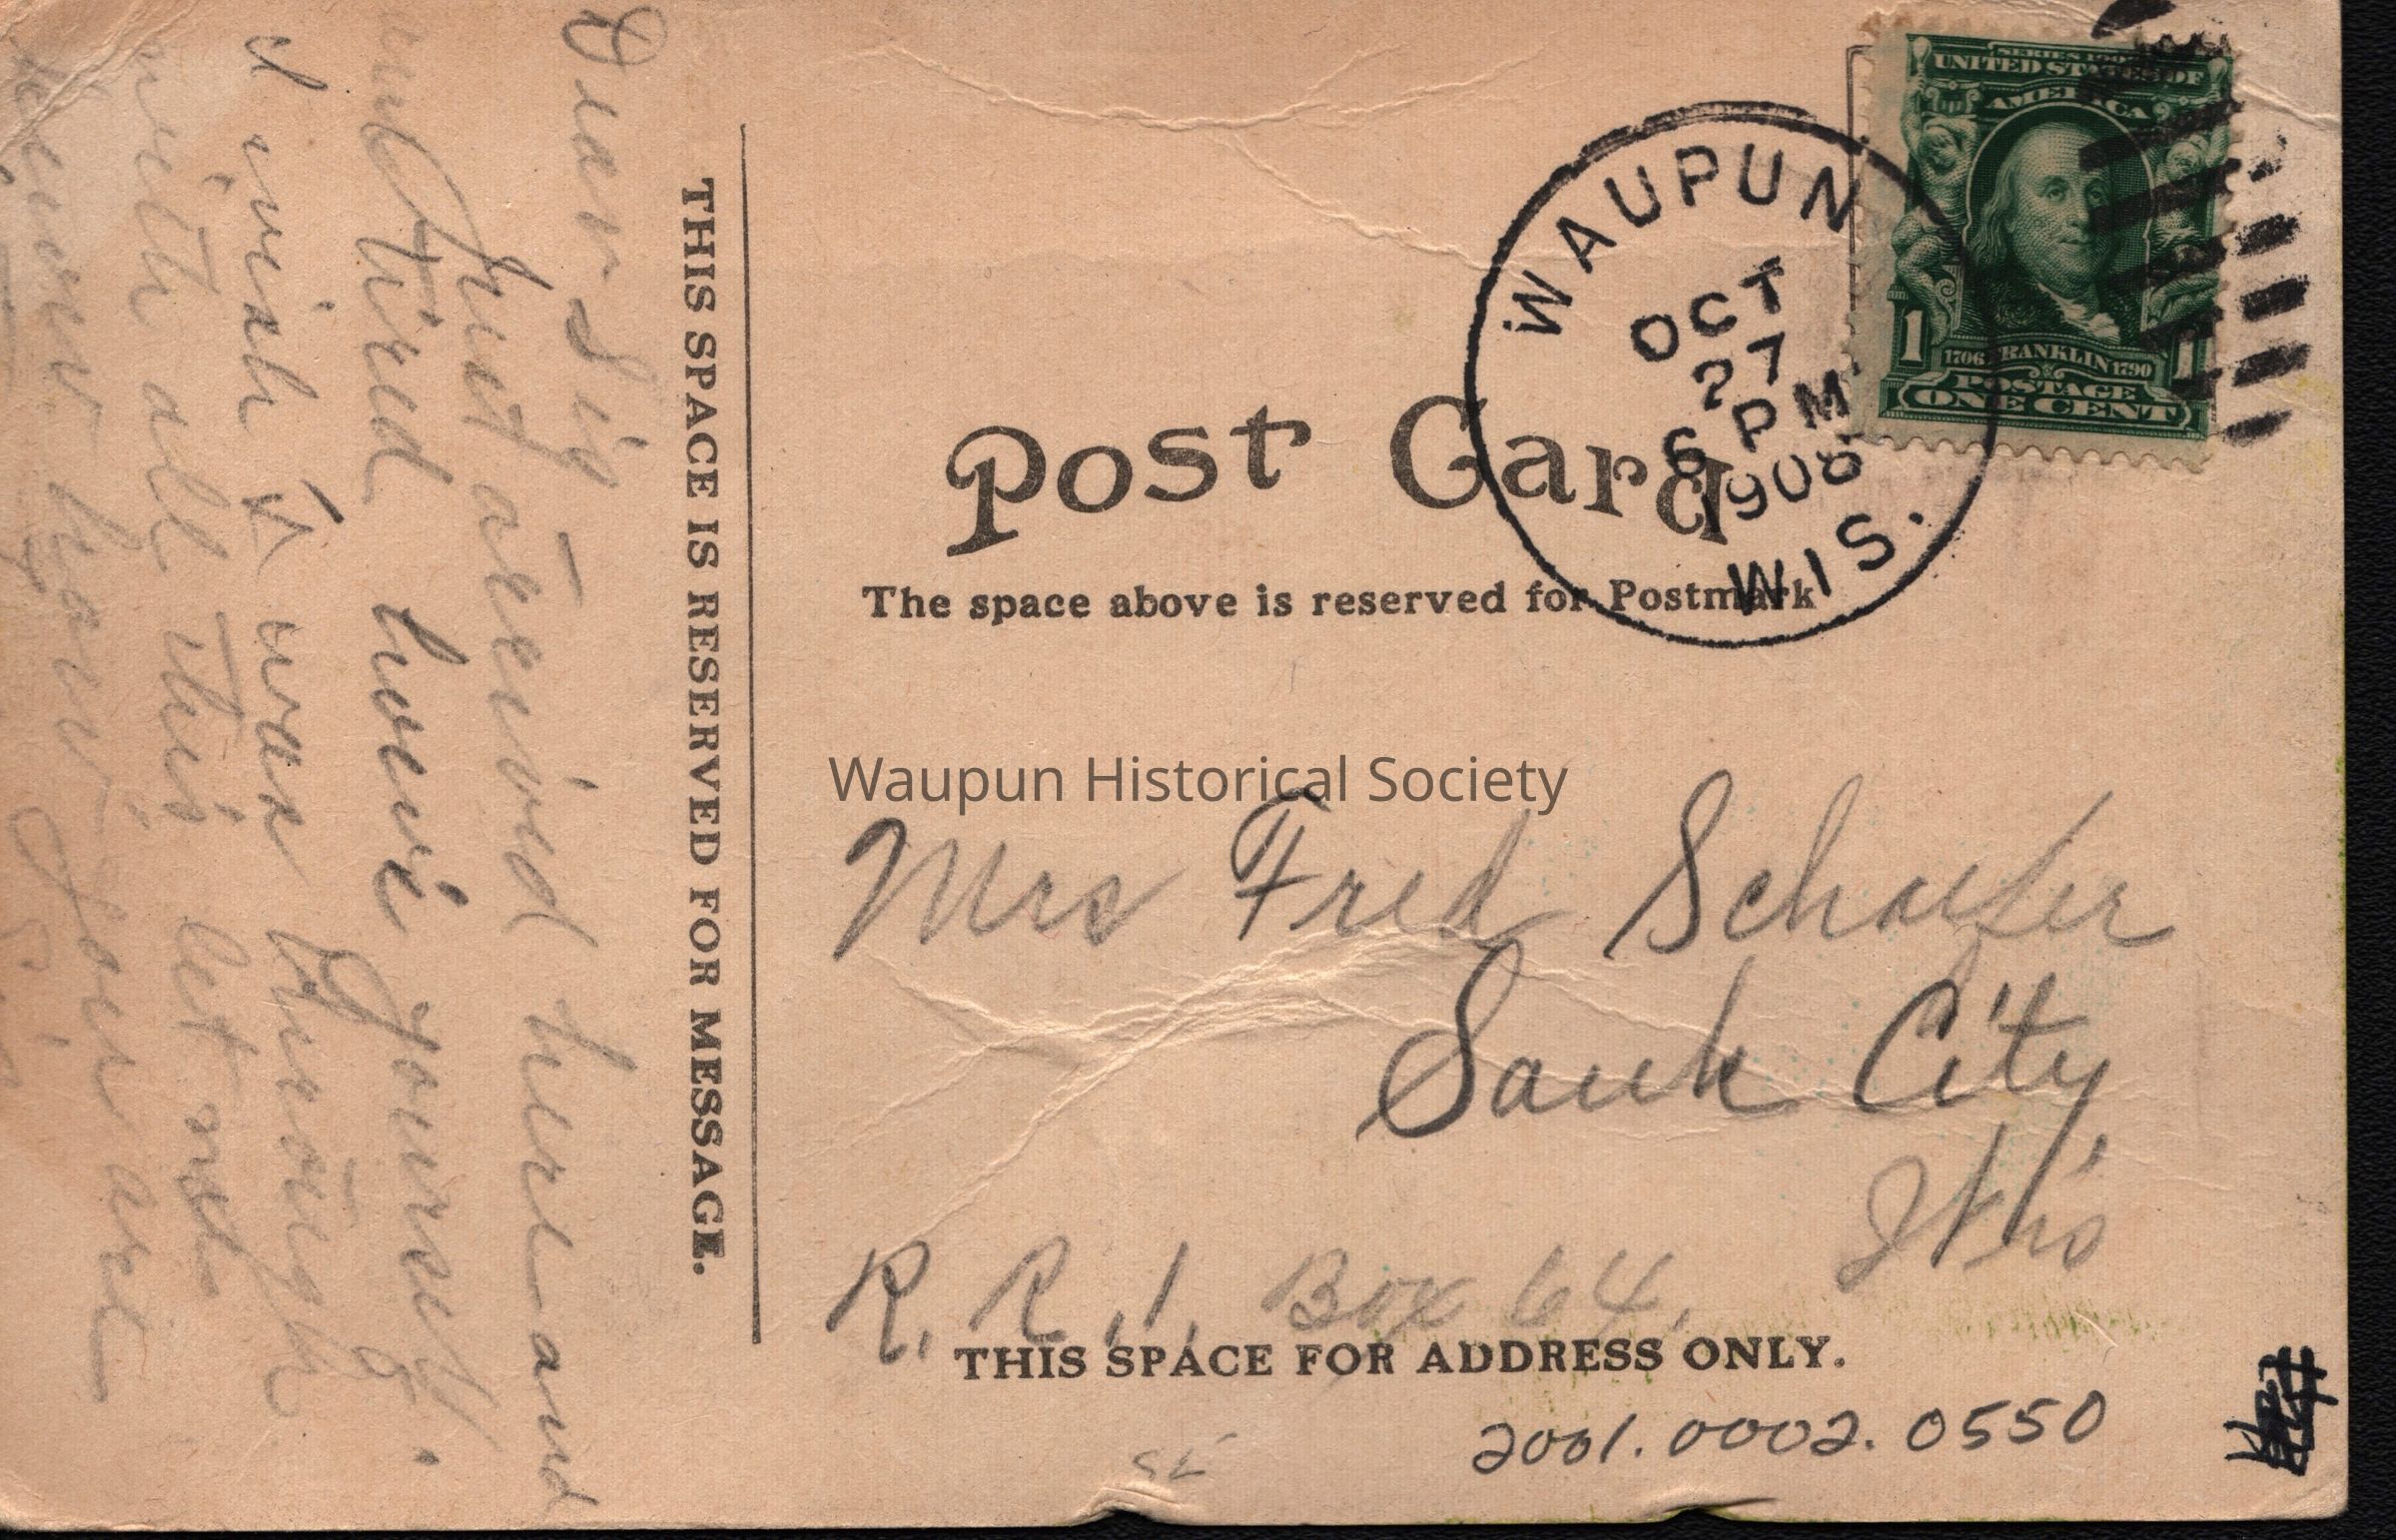 Dear Sis
Just arrived here and
am tired. how's yourself.
I wish I was through
with all this. let me
know how your are
THIS SPACE IS RESERVED FOR MESSAGE.
SERIES 1902
UNITED STATES OF
AMERICA
1 1
1706 FRANKLIN 1790
POSTAGE
ONE CENT
WAUPUN
OCT
7
2 PM
1908
WIS.
Post Card
The space above is reserved for Postmark
Waupun Historical Society
Mrs Fred Schaefer
Sauk City,
Wis
R. R. 1. Box 64.
THIS SPACE FOR ADDRESS ONLY.
2001.0002.0550